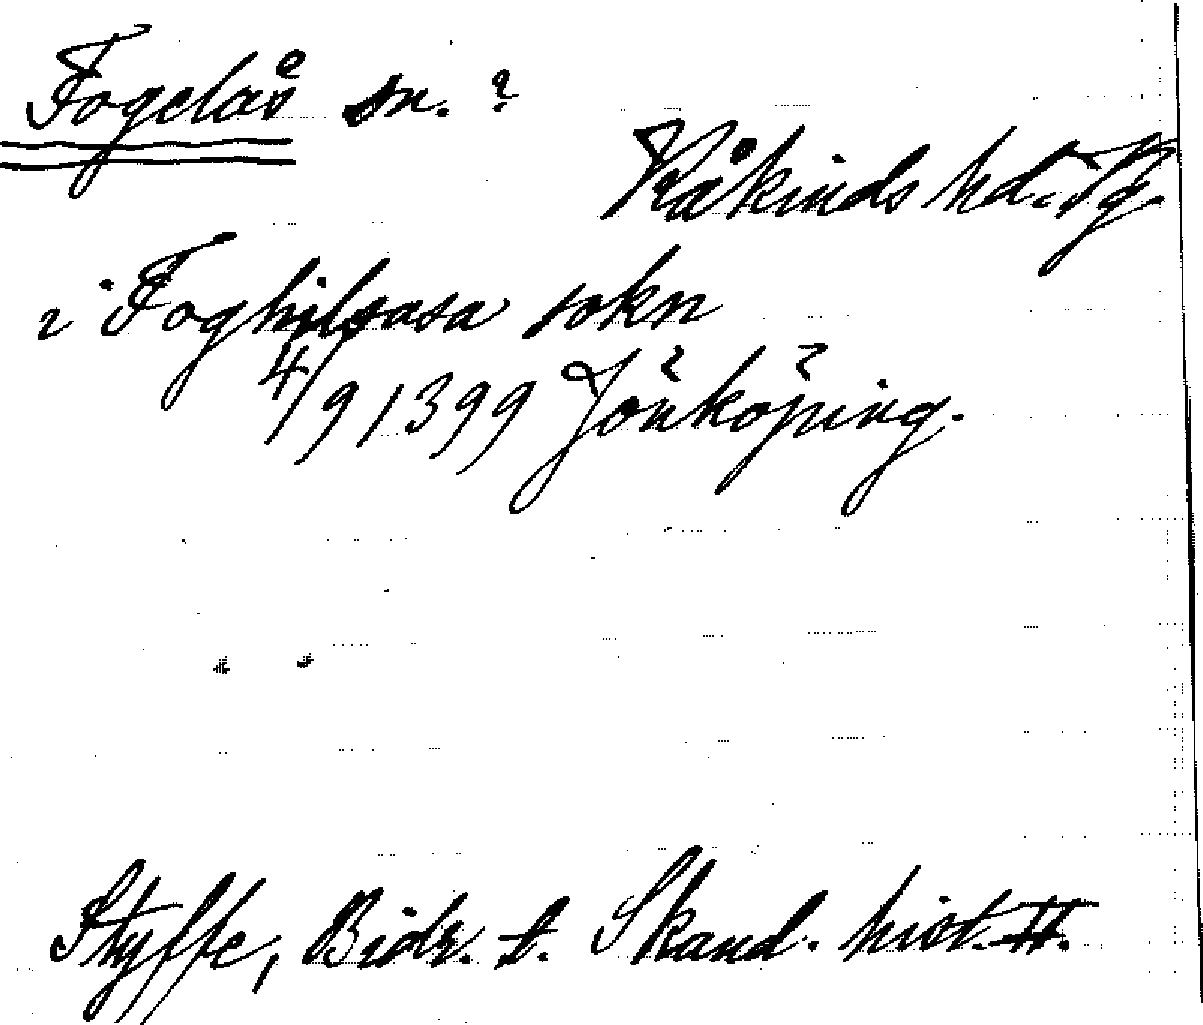 Fogelås sn. ?
Kåkinds hd. Vg.
i Foghilsasa sokn
4/9 1399 Jönköping.
Styffe, Bidr. t. Skand. hist. II.